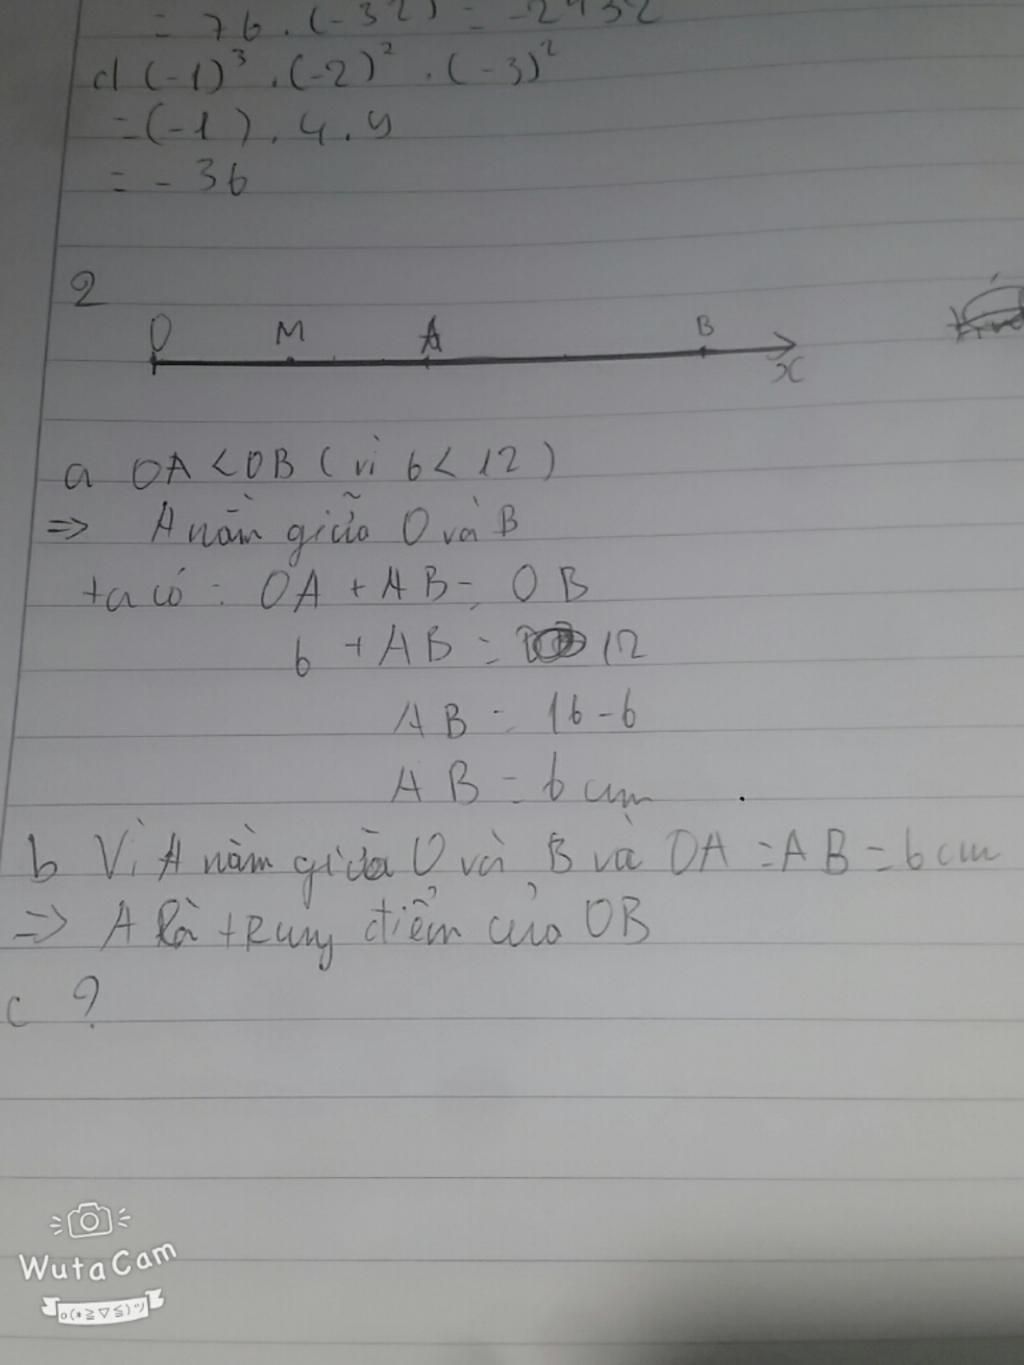 = 76 . (-32) = -2432
d (-1)³ . (-2)² . (-3)²
= (-1) . 4 . 9
= - 36
2
O M A B
x
a OA < OB ( vì 6 < 12 )
=> A nằm giữa O và B
ta có : OA + AB = OB
6 + AB = 12
AB = 16 - 6
AB = 6 cm
b Vì A nằm giữa O và B và OA = AB = 6 cm
=> A là trung điểm của OB
c ?
WutaCam
o(*≧▽≦)ツ